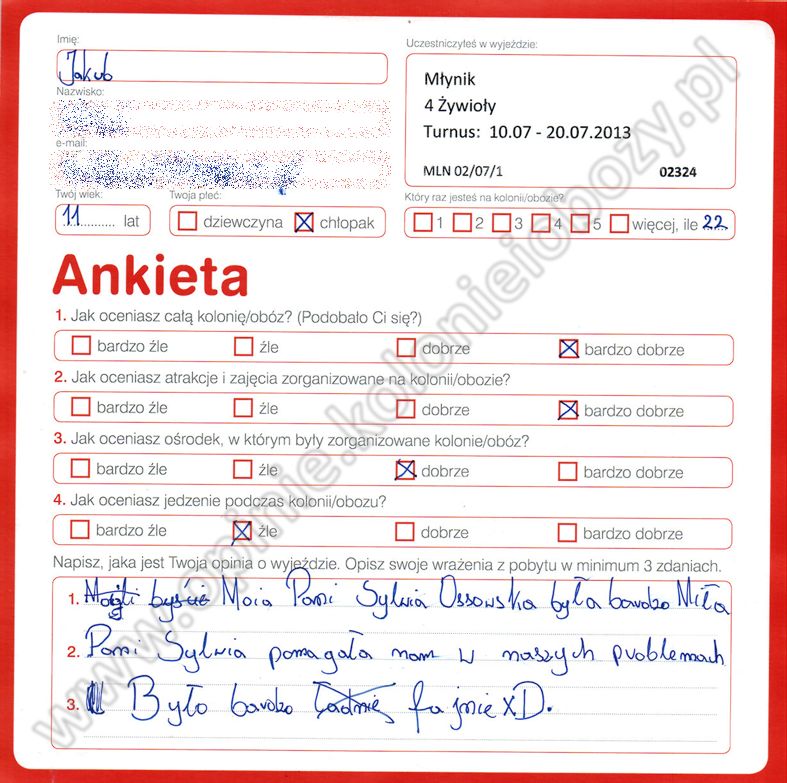 Imię:
Jakub
Nazwisko:
e-mail:
Twój wiek:
11 lat
Twoja płeć:
dziewczyna chłopak
Uczestniczyłeś w wyjeździe:
Młynik
4 Żywioły
Turnus: 10.07 - 20.07.2013
MLN 02/07/1 02324
Który raz jesteś na kolonii/obozie?
1 2 3 4 5 więcej, ile 22
Ankieta
1. Jak oceniasz całą kolonię/obóz? (Podobało Ci się?)
bardzo źle źle dobrze bardzo dobrze
2. Jak oceniasz atrakcje i zajęcia zorganizowane na kolonii/obozie?
bardzo źle źle dobrze bardzo dobrze
3. Jak oceniasz ośrodek, w którym były zorganizowane kolonie/obóz?
bardzo źle źle dobrze bardzo dobrze
4. Jak oceniasz jedzenie podczas kolonii/obozu?
bardzo źle źle dobrze bardzo dobrze
Napisz, jaka jest Twoja opinia o wyjeździe. Opisz swoje wrażenia z pobytu w minimum 3 zdaniach.
1. Moia Pani Sylwia Ossowska była bardzo Miła
2. Pani Sylwia pomagała nam w naszych problemach
3. Było bardzo ładnie fajnie xD.
www.opinie.kolonieiobozy.pl